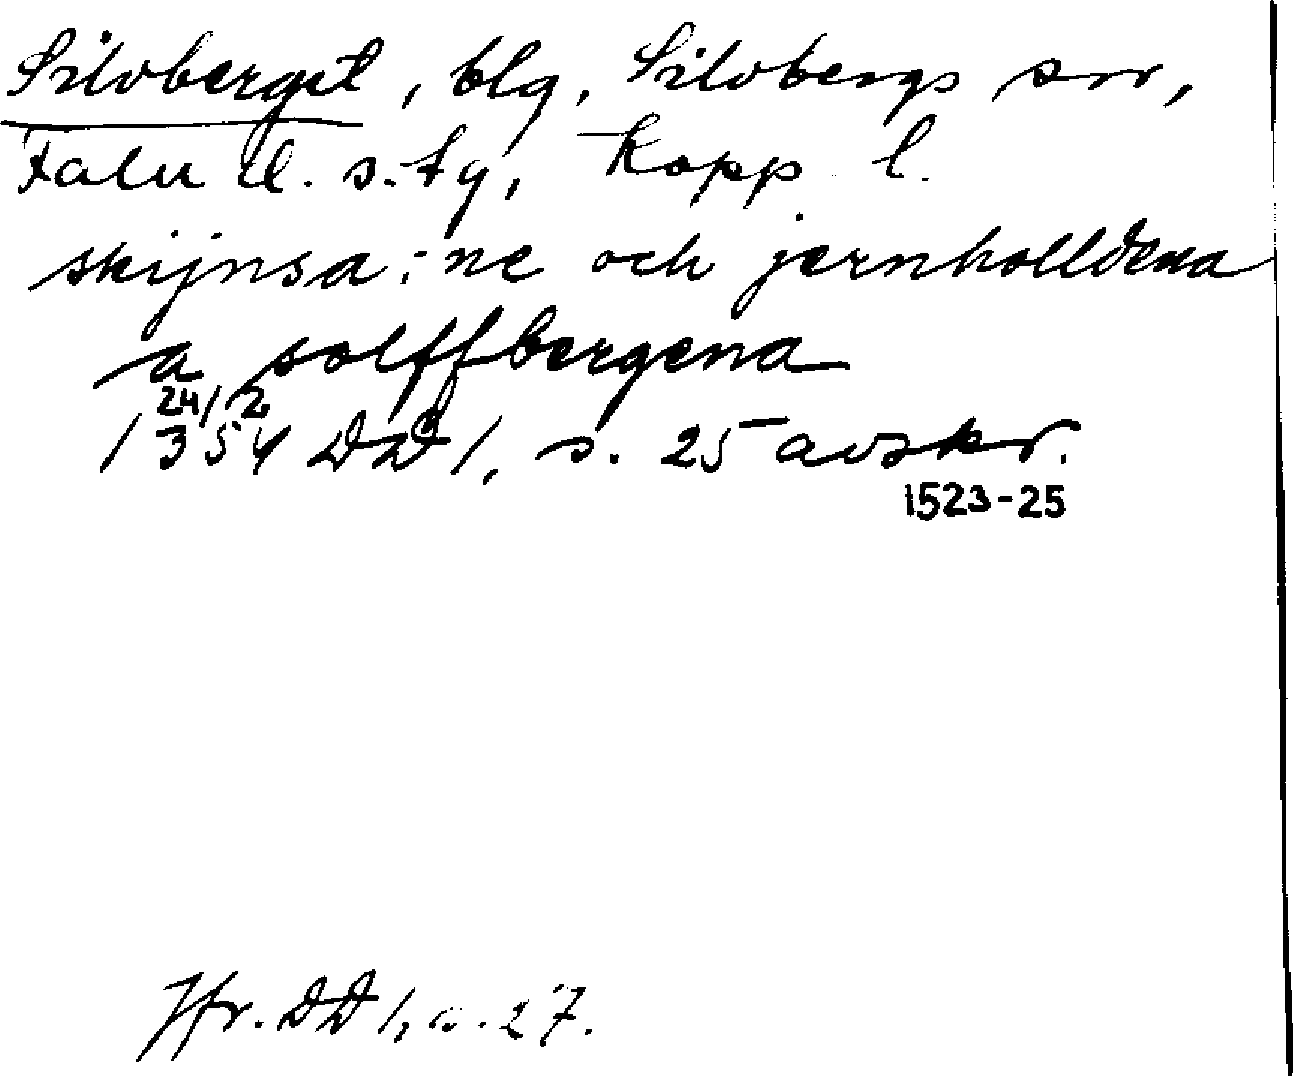 Silvberget, blg, Silvbergs sn,
Falu d. s. tg, Kopp l.
skijnsa:ne och jernholldena
a solffbergena
24/2
1354 DD 1, s. 25 avskr.
1523-25
Jfr. DD 1, s. 27.